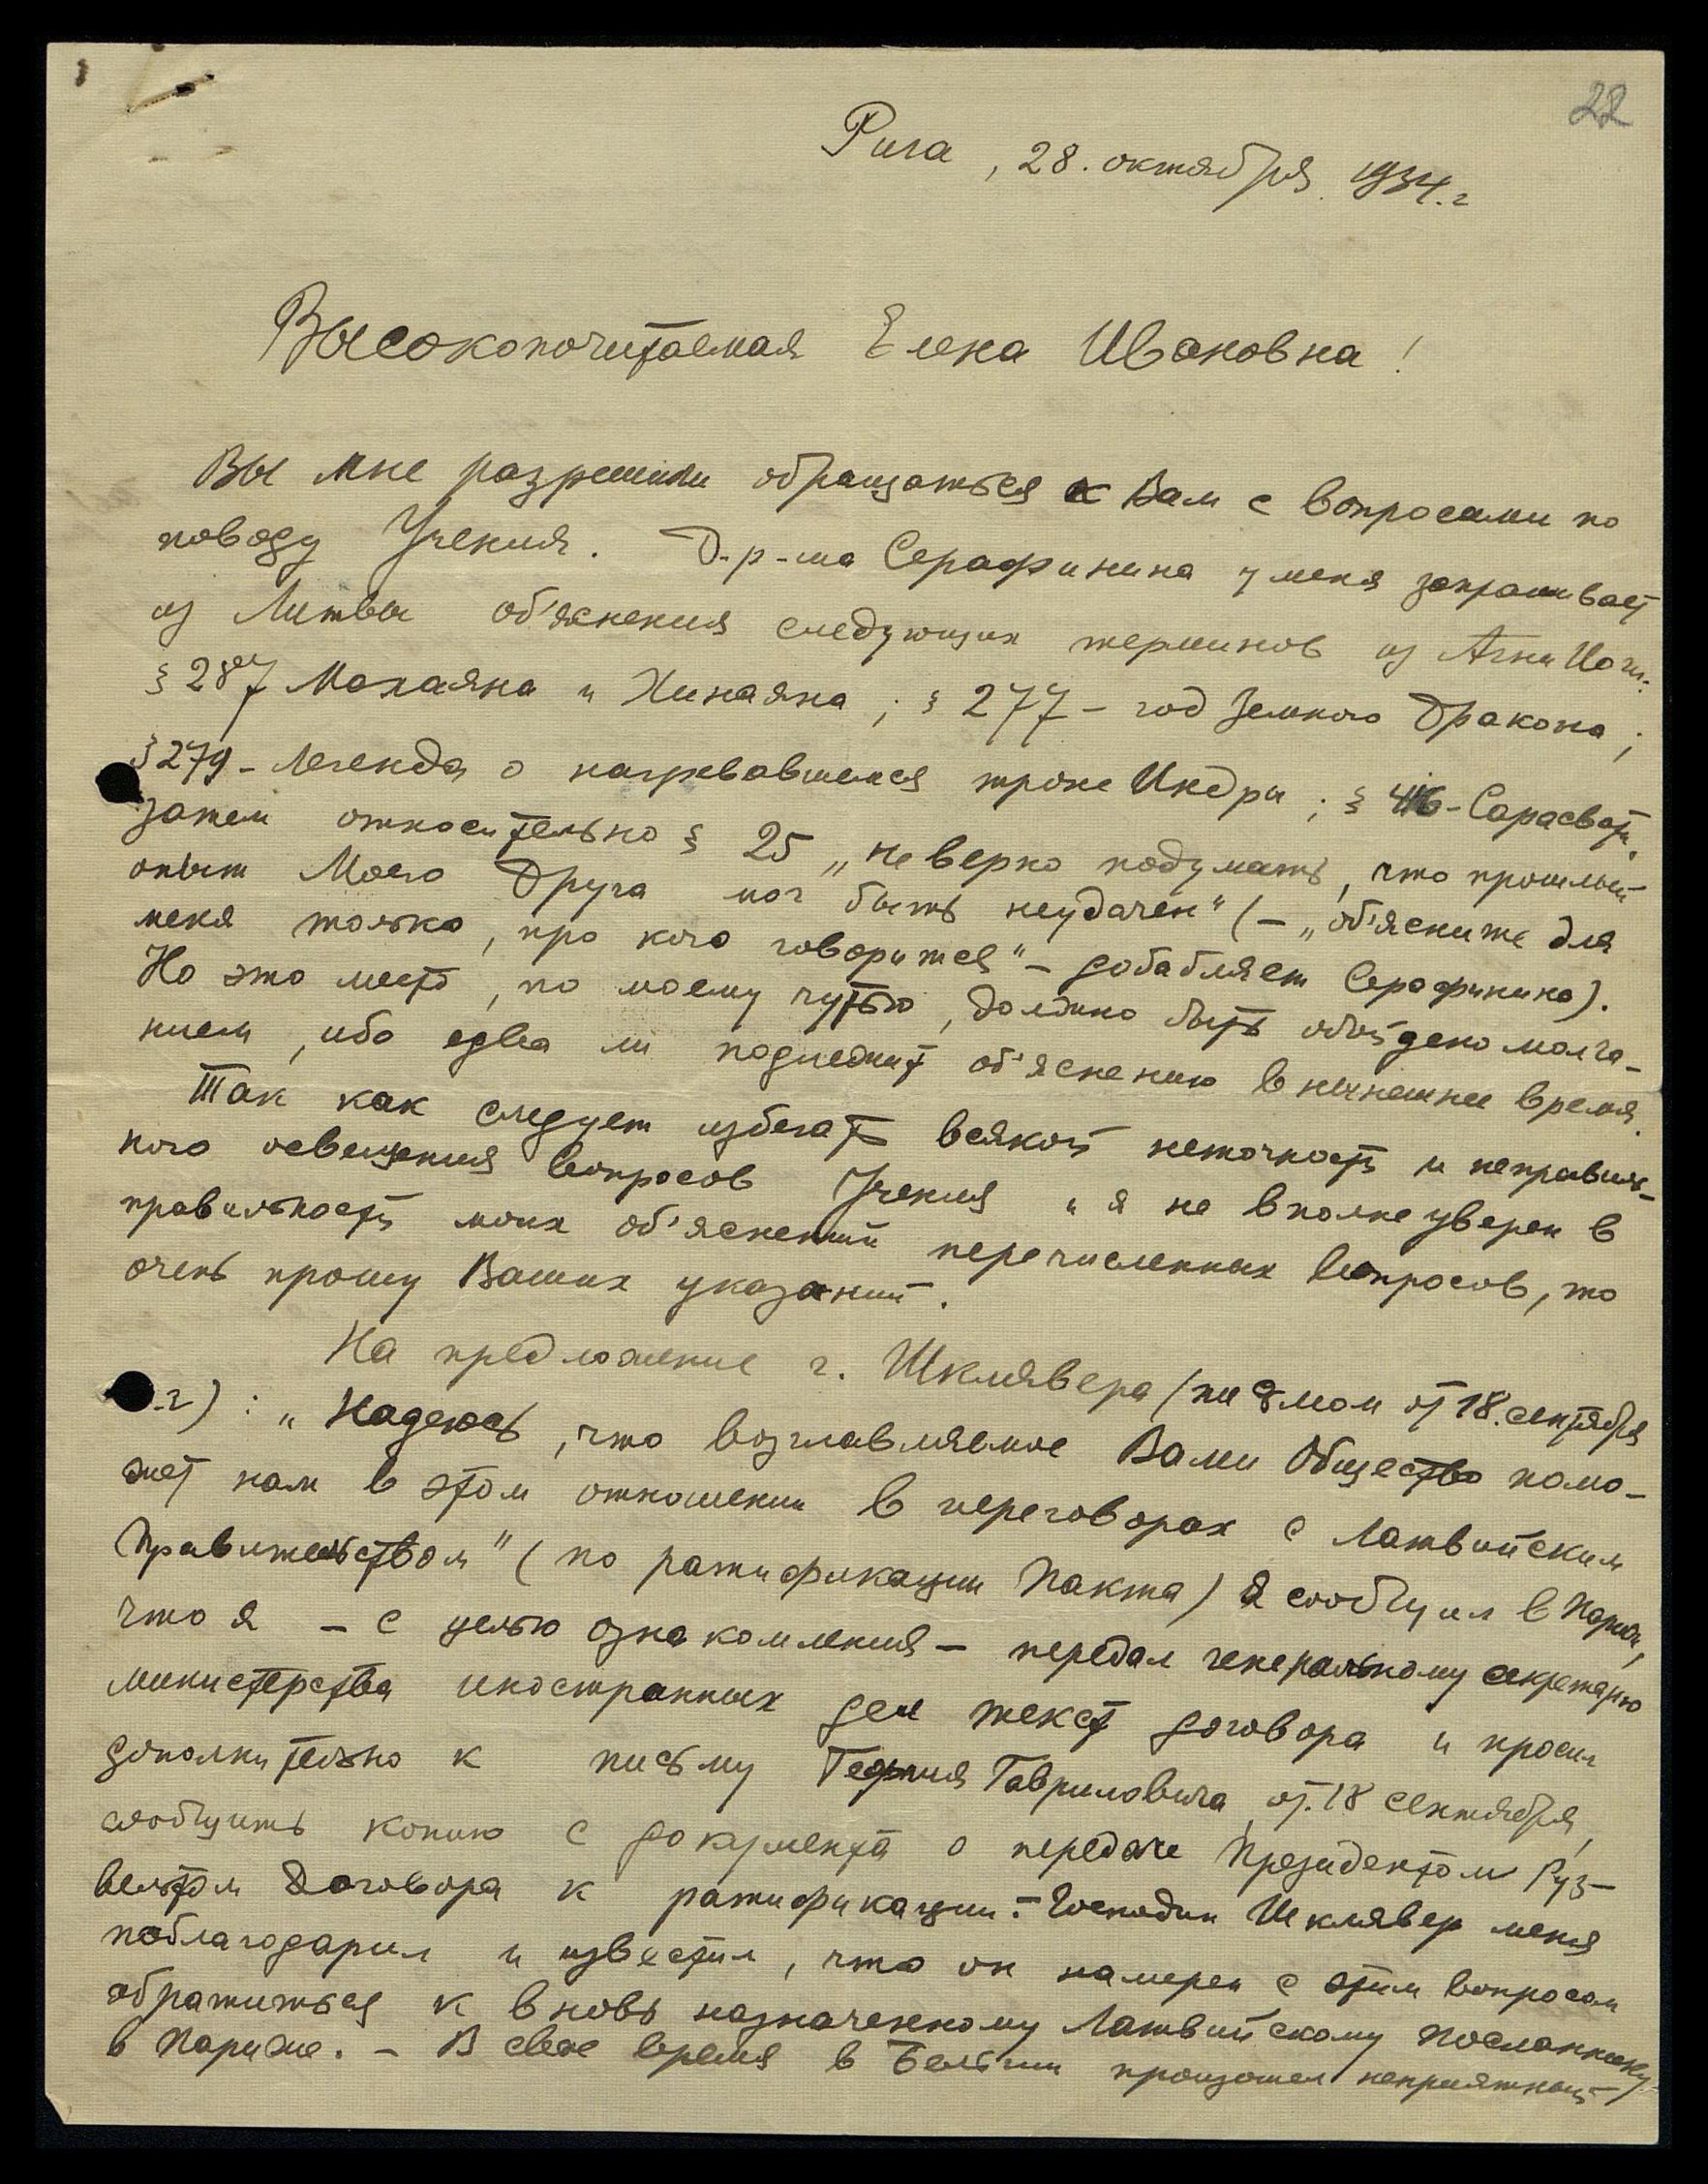 22
Рига, 28. октября 1934.г
Высокопочитаемая Елена Ивановна!
Вы мне разрешили обращаться к Вам с вопросами по
поводу Учения. Д-р-ша Серафинина у меня запрашивает
из Литвы об'яснения следующих терминов из Агни Иоги:
§ 287 Махаяна и Хинаяна; § 277 – год Земного Дракона;
§ 279 – Легенда о нагревавшемся троне Индры; § 416 – Сарасвати,
затем относительно § 25 „не верно подумать, что прошлый
опыт Моего Друга мог быть неудачен" (– „об'ясните для
меня только, про кого говорится" – добавляет Серафинина).
Но это место, по моему чутью, должно быть обойдено молча-
нием, ибо едва ли подлежит об'яснению в нынешнее время.
Так как следует избегать всякой неточности и неправиль-
ного освещения вопросов Учения и я не вполне уверен в
правильности моих об'яснений перечисленных вопросов, то
очень прошу Ваших указаний.
На предложение г. Шклявера (письмом от 18. сентября
.г): „Надеюсь, что возглавляемое Вами Общество помо-
жет нам в этом отношении в переговорах с Латвийским
Правительством" (по ратификации Пакта) я сообщил в Париж,
что я – с целью ознакомления – передал генеральному секретарю
министерства иностранных дел текст договора и просил
дополнительно к письму Георгия Гавриловича, от 18 сентября,
сообщить копию с документа о передаче Президентом Руз-
вельтом Договора к ратификации. – Господин Шклявер меня
поблагодарил и известил, что он намерен с этим вопросом
обратиться к вновь назначенному Латвийскому Посланнику
в Париже. – В свое время в Бельгии произошел неприятный